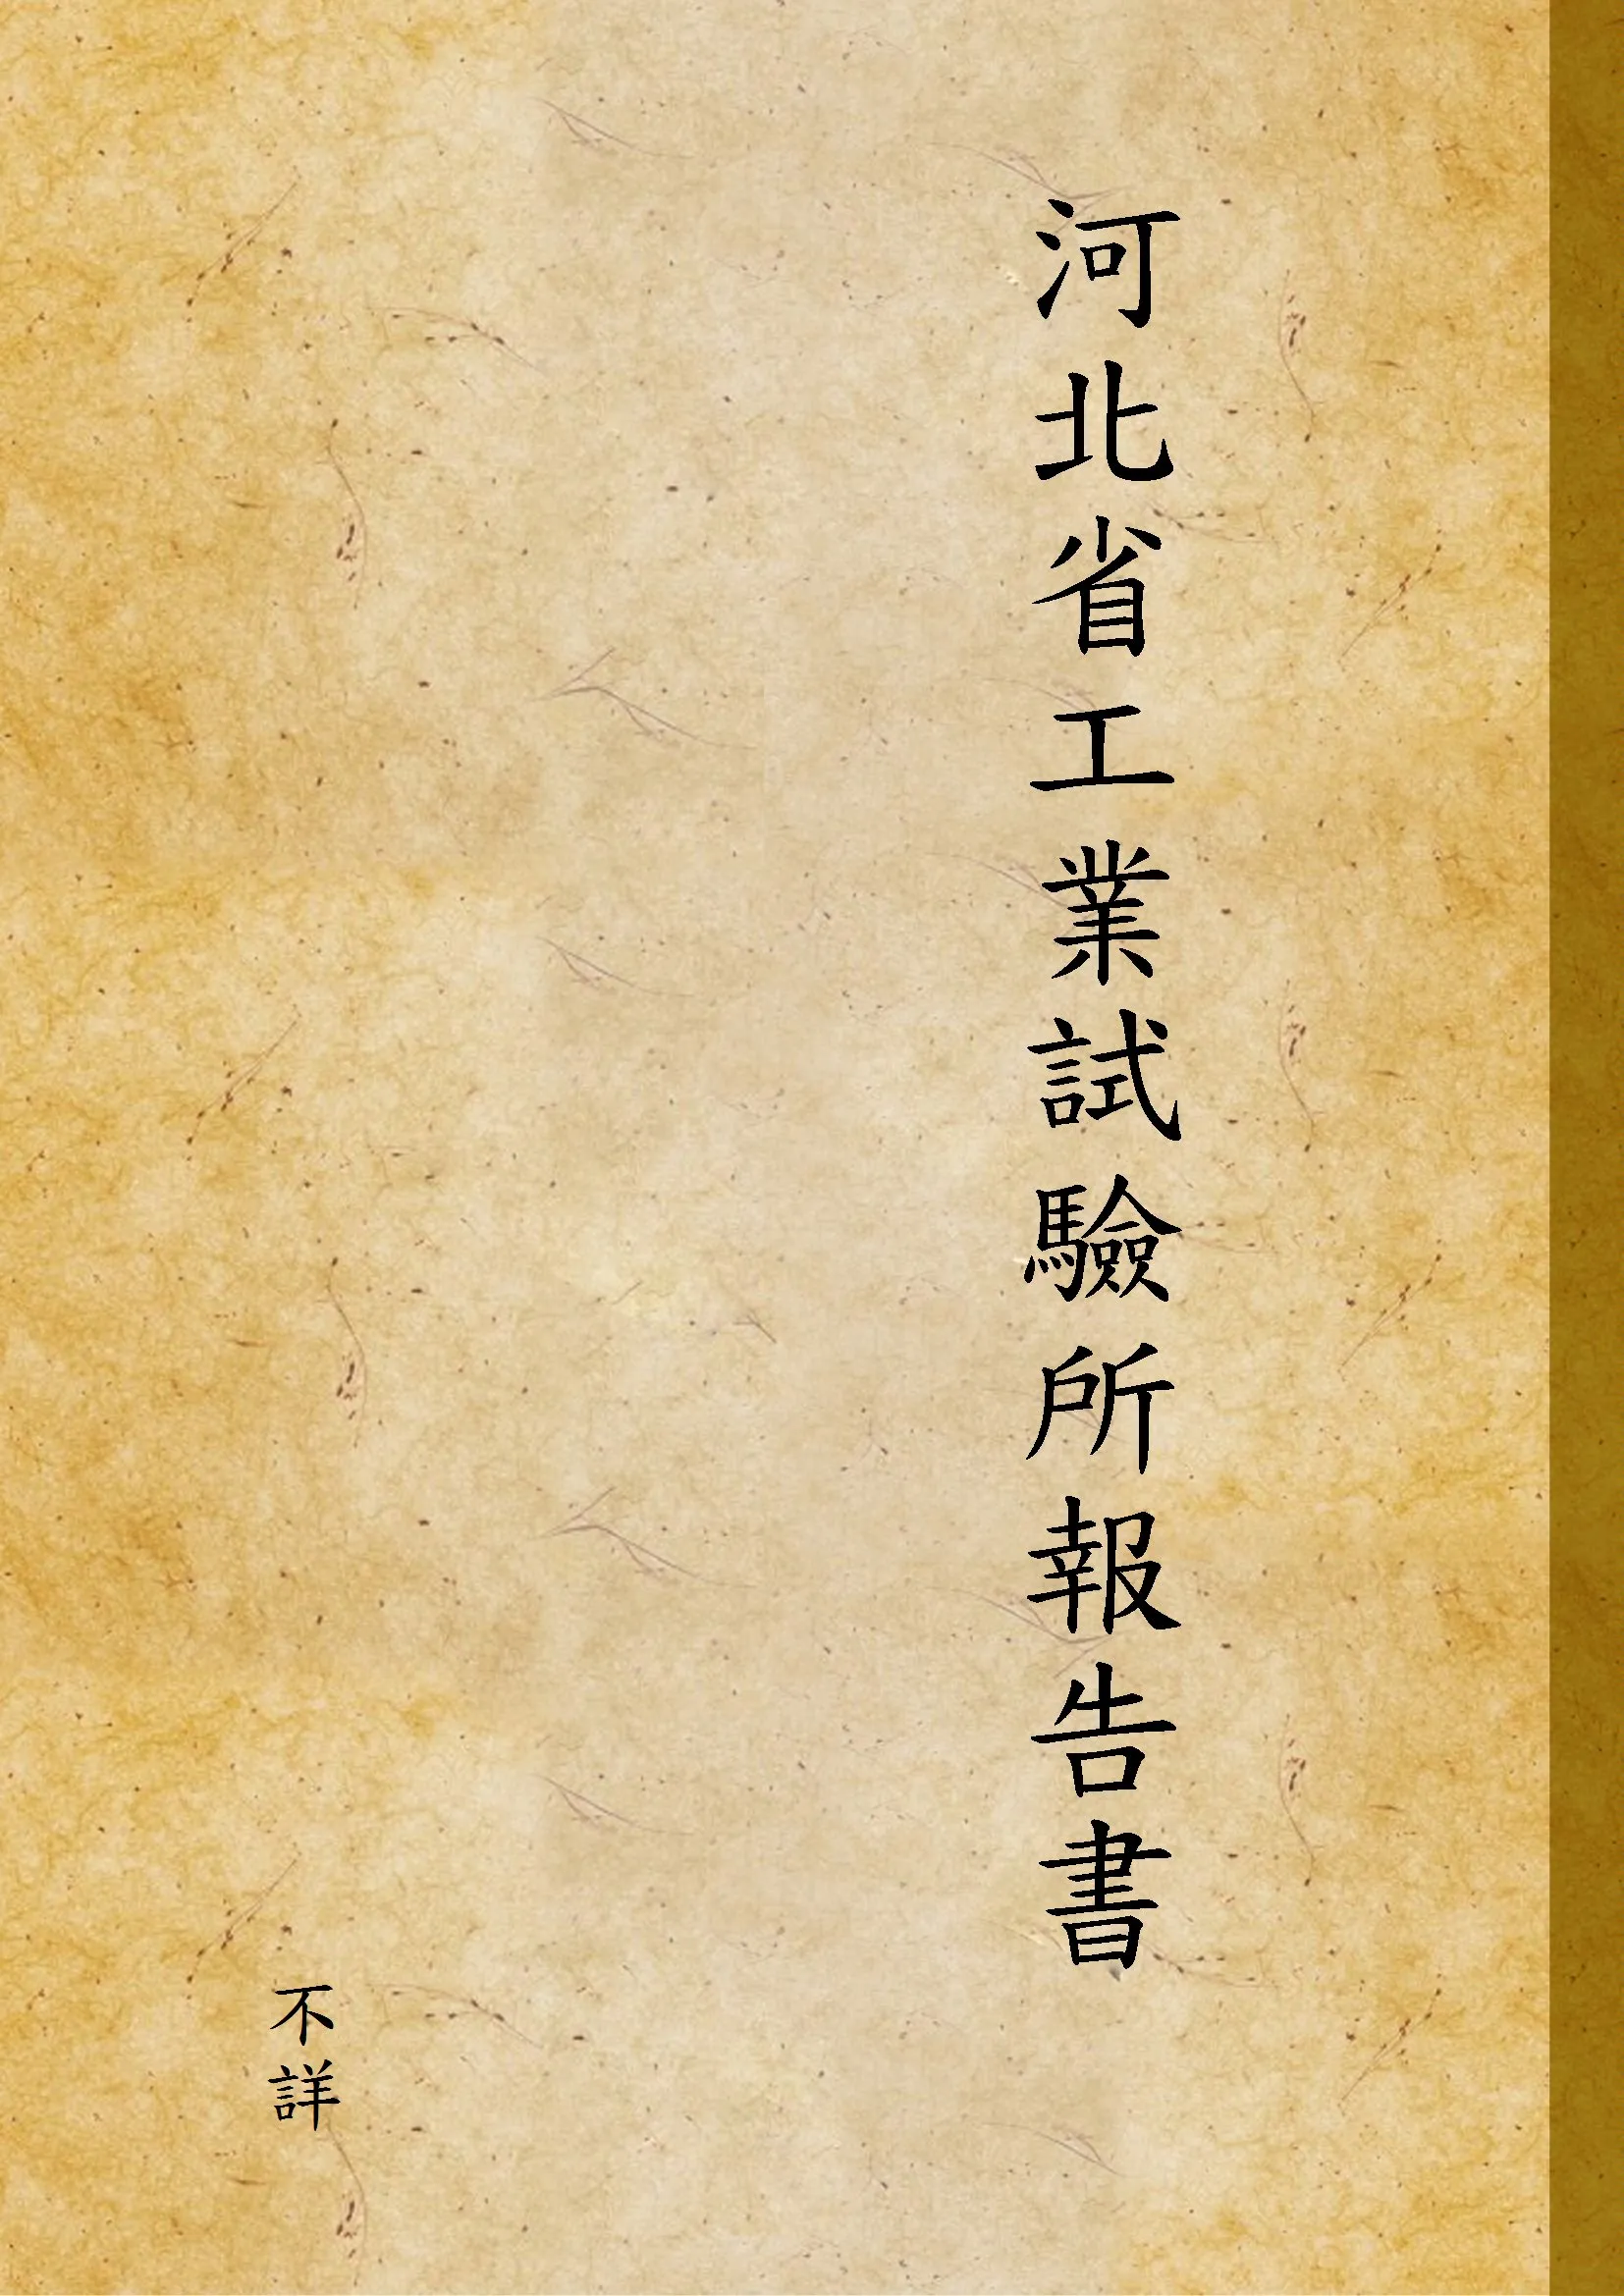 河北省工業試驗所報告書
不詳